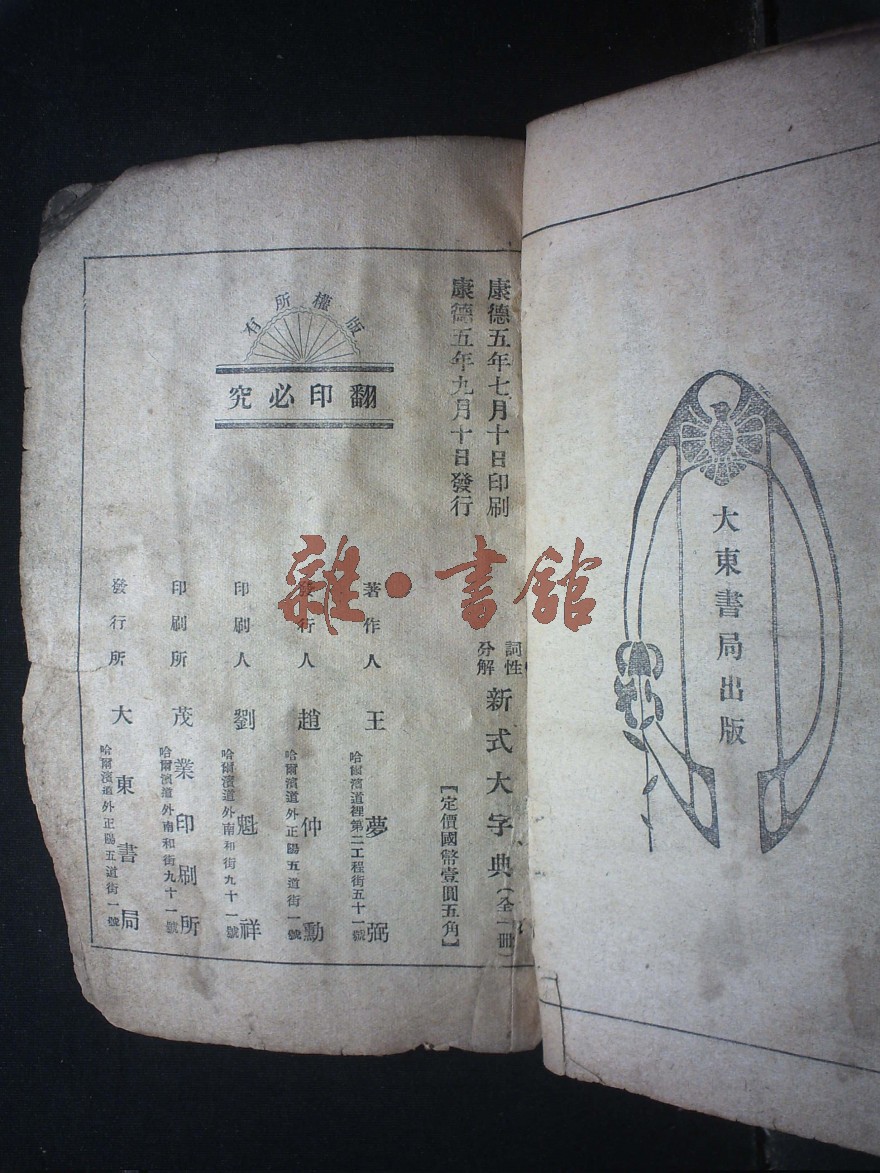 大東書局出版
康德五年七月十日印刷
康德五年九月十日發行
版權所有
翻印必究
詞性
分解
新式大字典(全一冊)
【定價國幣壹圓五角】
著作人 王夢弼
哈爾濱道裡第二工程街五十一號
發行人 趙仲勳
哈爾濱道外正陽五道街一號
印刷人 劉魁祥
哈爾濱道外南和街九十一號
印刷所 茂業印刷所
哈爾濱道外南和街九十一號
發行所 大東書局
哈爾濱道外正陽五道街一號
雜·書館